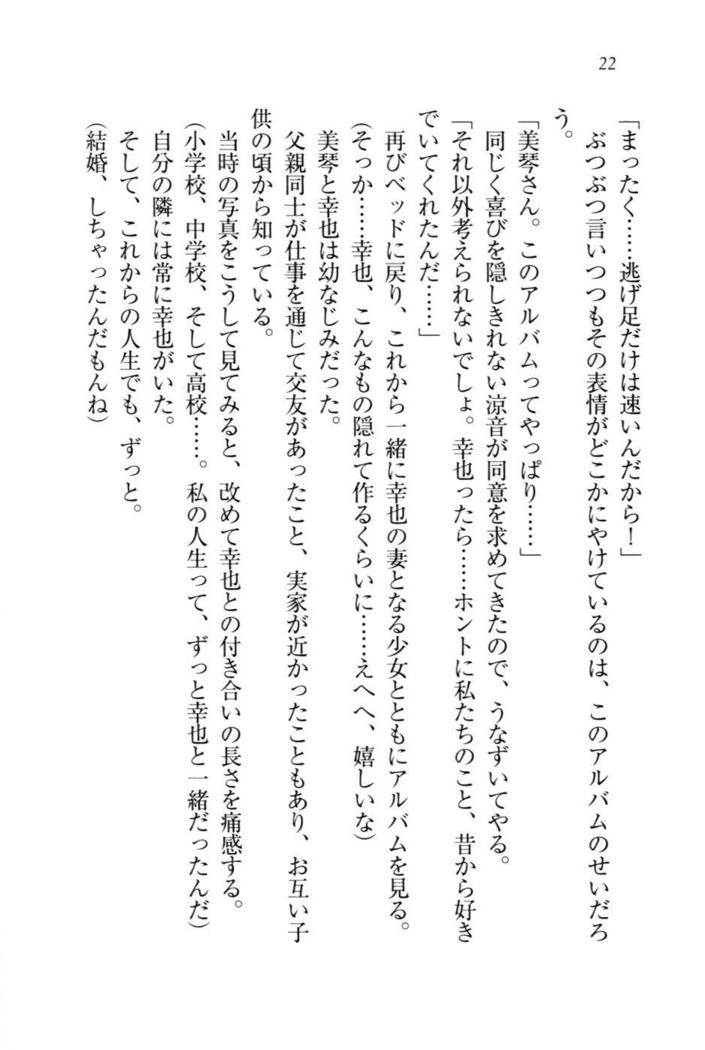 22
「まったく……逃げ足だけは速いんだから！」
ぶつぶつ言いつつもその表情がどこかにやけているのは、このアルバムのせいだろ
う。
「美琴さん。このアルバムってやっぱり……」
同じく喜びを隠しきれない涼音が同意を求めてきたので、うなずいてやる。
「それ以外考えられないでしょ。幸也ったら……ホントに私たちのこと、昔から好き
でいてくれたんだ……」
再びベッドに戻り、これから一緒に幸也の妻となる少女とともにアルバムを見る。
（そっか……幸也、こんなもの隠れて作るくらいに……えへへ、嬉しいな）
美琴と幸也は幼なじみだった。
父親同士が仕事を通じて交友があったこと、実家が近かったこともあり、お互い子
供の頃から知っている。
当時の写真をこうして見てみると、改めて幸也との付き合いの長さを痛感する。
（小学校、中学校、そして高校……。私の人生って、ずっと幸也と一緒だったんだ）
自分の隣には常に幸也がいた。
そして、これからの人生でも、ずっと。
（結婚、しちゃったんだもんね）